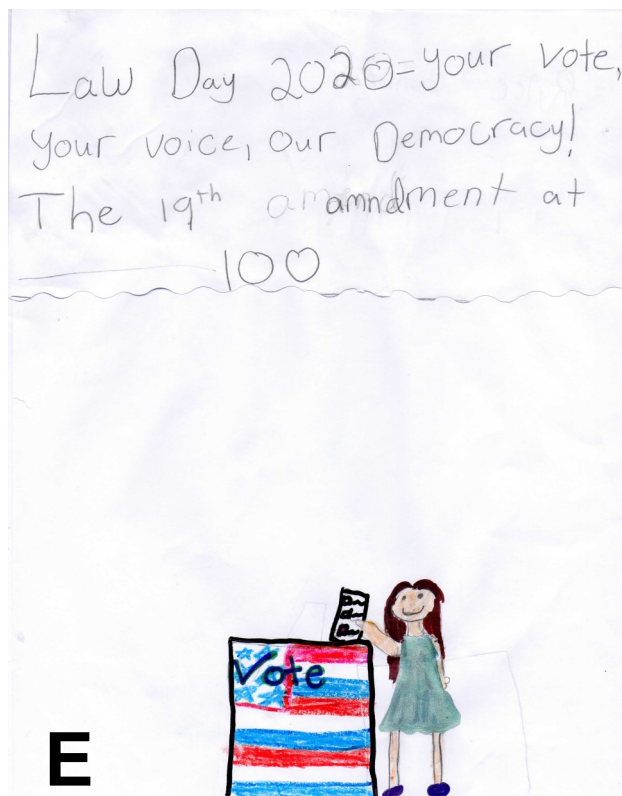 Law Day 2020=your vote,
your voice, our Democracy!
The 19th amndment at
100
Vote
E